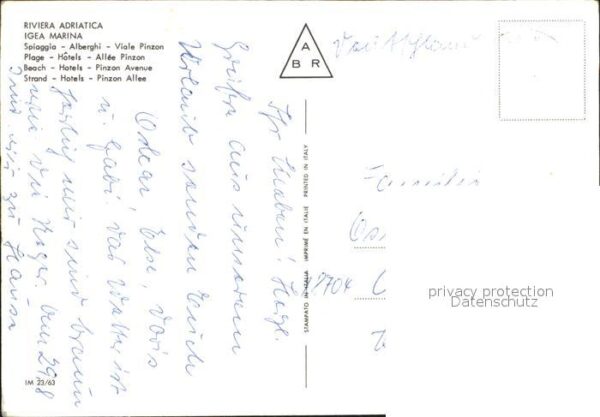 RIVIERA ADRIATICA
IGEA MARINA
Spiaggia - Alberghi - Viale Pinzon
Plage - Hôtels - Allée Pinzon
Beach - Hotels - Pinzon Avenue
Strand - Hotels - Pinzon Allee
A
B R
Ihr Lieben!
Grüße aus unserem
Urlaub senden Euch
Oskar Else, Doris
u. Gabi! Das Wetter ist
und wir sind braun
wie die Neger. Am 29.8
sind wir zu Hause
STAMPATO IN ITALIA IMPRIMÉ EN ITALIE PRINTED IN ITALY
Familie
privacy protection
Datenschutz
IM 23/63